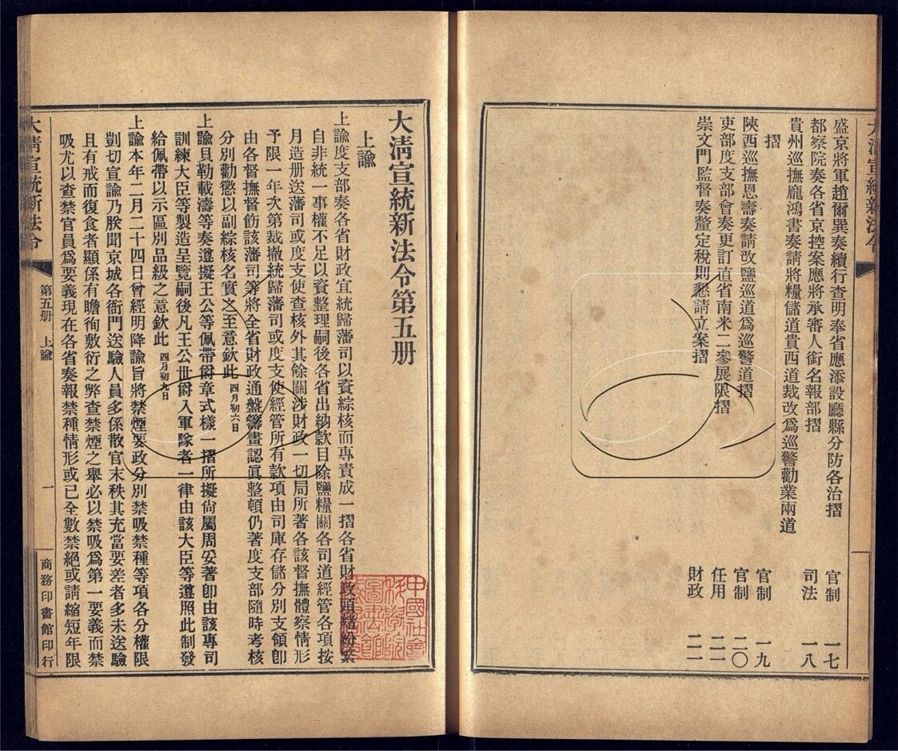 盛京將軍趙爾巽奏續行查明奉省應添設廳縣分防各治摺 官制 一七
都察院奏各省京控案應將承審人銜名報部摺 司法 一八
貴州巡撫龐鴻書奏請將糧儲道貴西道裁改爲巡警勸業兩道
摺 官制 一九
陝西巡撫恩壽奏請改鹽巡道爲巡警道摺 官制 二〇
吏部度支部會奏更訂直省南米二參展限摺 任用 二一
崇文門監督奏釐定稅則懇請立案摺 財政 二一
大清宣統新法令
大清宣統新法令第五册
上諭
上諭度支部奏各省財政宜統歸藩司以資綜核而專責成一摺各省財政頭緒紛繁
自非統一事權不足以資整理嗣後各省出納款目除鹽糧關各司道經管各項按
月造册送藩司或度支使查核外其餘關涉財政一切局所著各該督撫體察情形
予限一年次第裁撤統歸藩司或度支使經管所有款項由司庫存儲分別支領卽
由各督撫督飭該藩司等將全省財政通盤籌畫認眞整頓仍著度支部隨時考核
分別勸懲以副綜核名實之至意欽此 四月初六日
上諭貝勒載濤等奏遵擬王公等佩帶爵章式樣一摺所擬尙屬周妥著卽由該專司
訓練大臣等製造呈覽嗣後凡王公世爵入軍隊者一律由該大臣等遵照此制發
給佩帶以示區別品級之意欽此 四月初九日
上諭本年二月二十四日曾經明降諭旨將禁煙要政分別禁吸禁種等項各分權限
剴切宣諭乃朕聞京城各衙門送驗人員多係散官末秩其充當要差者多未送驗
且有戒而復食者顯係有瞻徇敷衍之弊查禁煙之舉必以禁吸爲第一要義而禁
吸尤以查禁官員爲要義現在各省奏報禁種情形或已全數禁絕或請縮短年限
大清宣統新法令 第五册 上諭 一 商務印書館印行